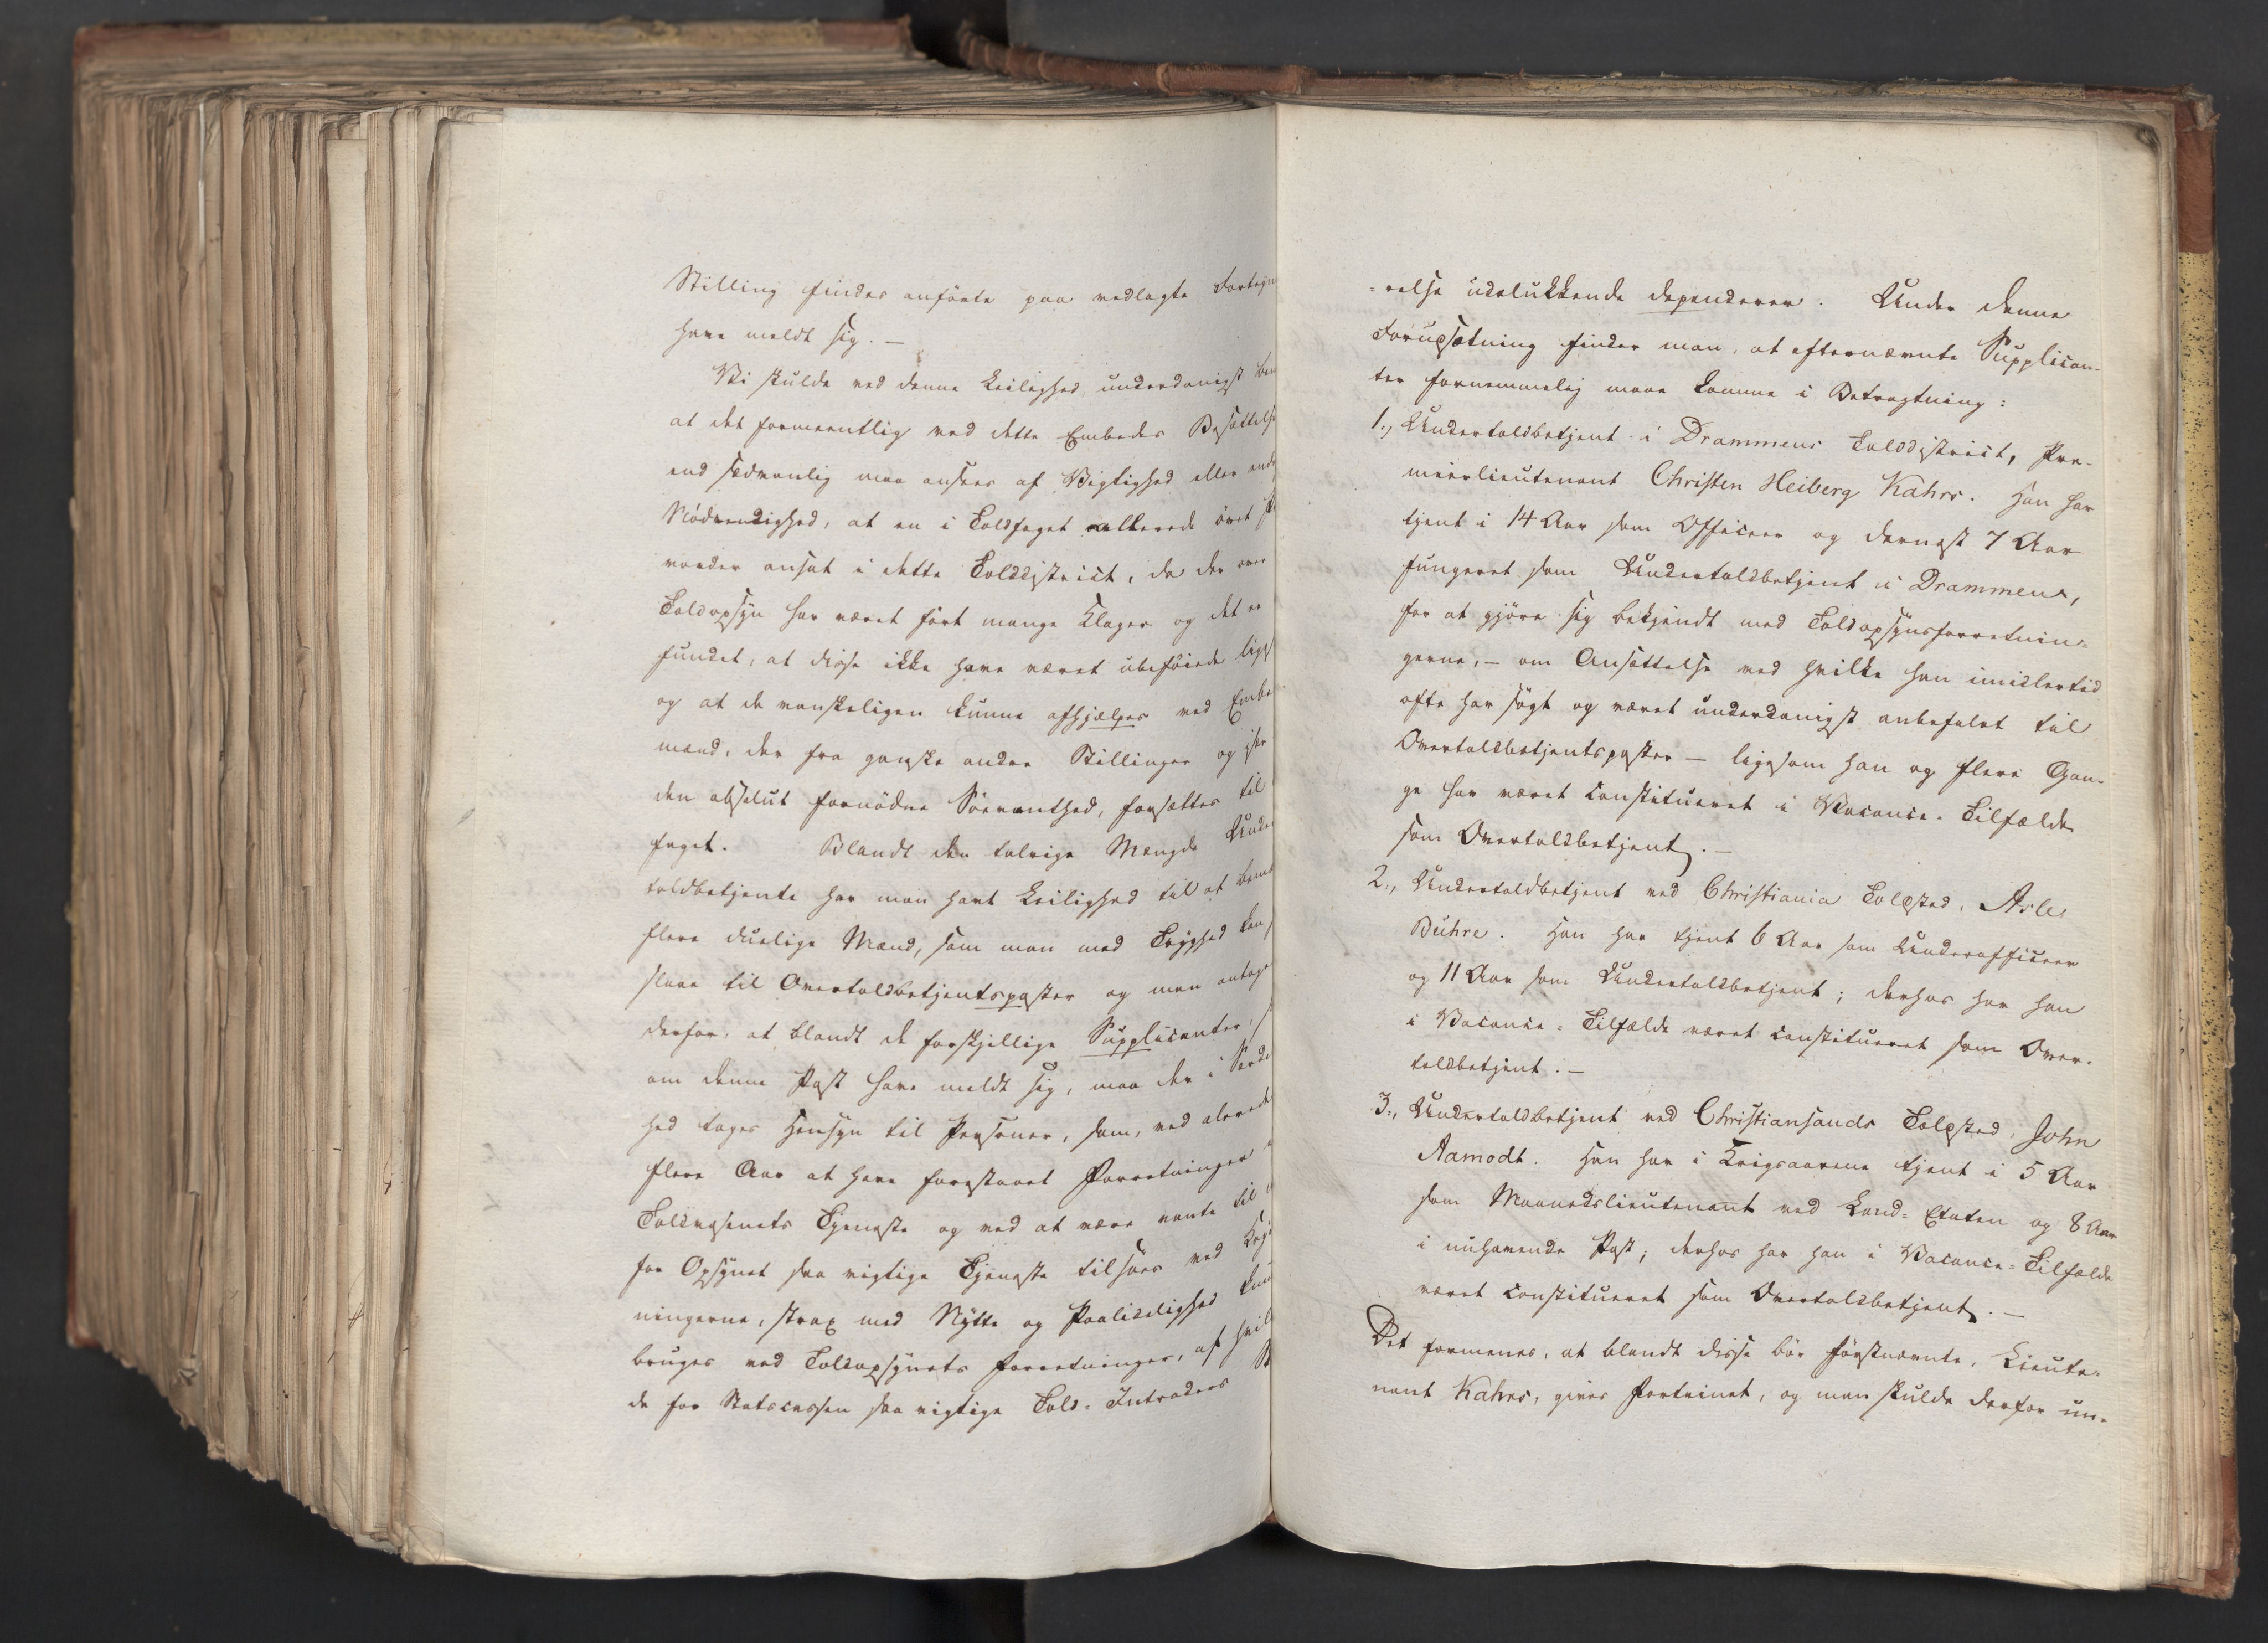 Stilling findes anförte paa vedlagte Forteg
have meldt sig. —
Vi skulde ved denne Leilighed underdanigst be
at det formeentlig ved dette Embedes Besættelse
end sædvanlig maa ansees af Vigtighed eller end
Nödvendighed, at en i Toldfaget allerede övet
vorder ansat i dette Tolddistrict, da der over
Toldopsyn har været fört mange Klager og det er
fundet, at disse ikke have været ubeföiede lige
og at de vanskeligen kunne afhjælpes ved Embe
mænd, der fra ganske andre Stillinger og
den absolut fornödne Söevanthed, forsættes til
faget. Blandt den talrige Mængde Under
toldbetjente har man havt Leilighed til at bem
flere duelige Mænd, som man med Tryghed kan
slaae til Overtoldbetjentsposter og man antage
derfor, at blandt de forskjellige Supplicanter,
om denne Post have meldt sig, maa der i
hed tages Hensyn til Personer, som, ved alerede
flere Aar at have forestaaet Forretninger
Toldvæsenets Tjeneste og ved at være vante til
for Opsynet saa vigtige Tjeneste tilsöes ved
ningerne, strax med Nytte og Paalidelighed kun
bruges ved Toldopsynets Forretninger, af hvil
de for Statscassen saa vigtige Told-Intraders
-relse udelukkende dependerer. Under denne
Forudsætning finder man, at efternævnte Supplican-
ter fornemmelig maae komme i Betragtning:
1., Undertoldbetjent i Drammens Tolddistrict, Pre-
mierlieutenant Christen Heiberg Kahrs. Han har
tjent i 14 Aar som Officeer og dernæst 7 Aar
fungeret som Undertoldbetjent i Drammen,
for at gjöre sig bekjendt med Toldopsynsforretnin-
gerne, — om Ansættelse ved hvilke han imidlertid
ofte har sögt og været underdanigst anbefalet til
Overtoldbetjentsposter — ligesom han og flere Gan-
ge har været constitueret i Vacance-Tilfælde
som Overtoldbetjent. —
2., Undertoldbetjent ved Christiania Toldsted, Asle
Buhre. Han har tjent 6 Aar som Underofficeer
og 11 Aar som Undertoldbetjent; derhos har han
i Vacance-Tilfælde været constitueret som Over-
toldbetjent. —
3., Undertoldbetjent ved Christiansands Toldsted, John
Aamodt. Han har i Krigsaarene tjent i 5 Aar
som Maanedslieutenant ved Land-Etaten og 8 Aar
i nuhavende Post; derhos har han i Vacance-Tilfælde
været constitueret som Overtoldbetjent. —
Det formenes, at blandt disse bör förstnævnte, Lieute-
nant Kahrs, gives Fortrinet, og man skulde derfor un-